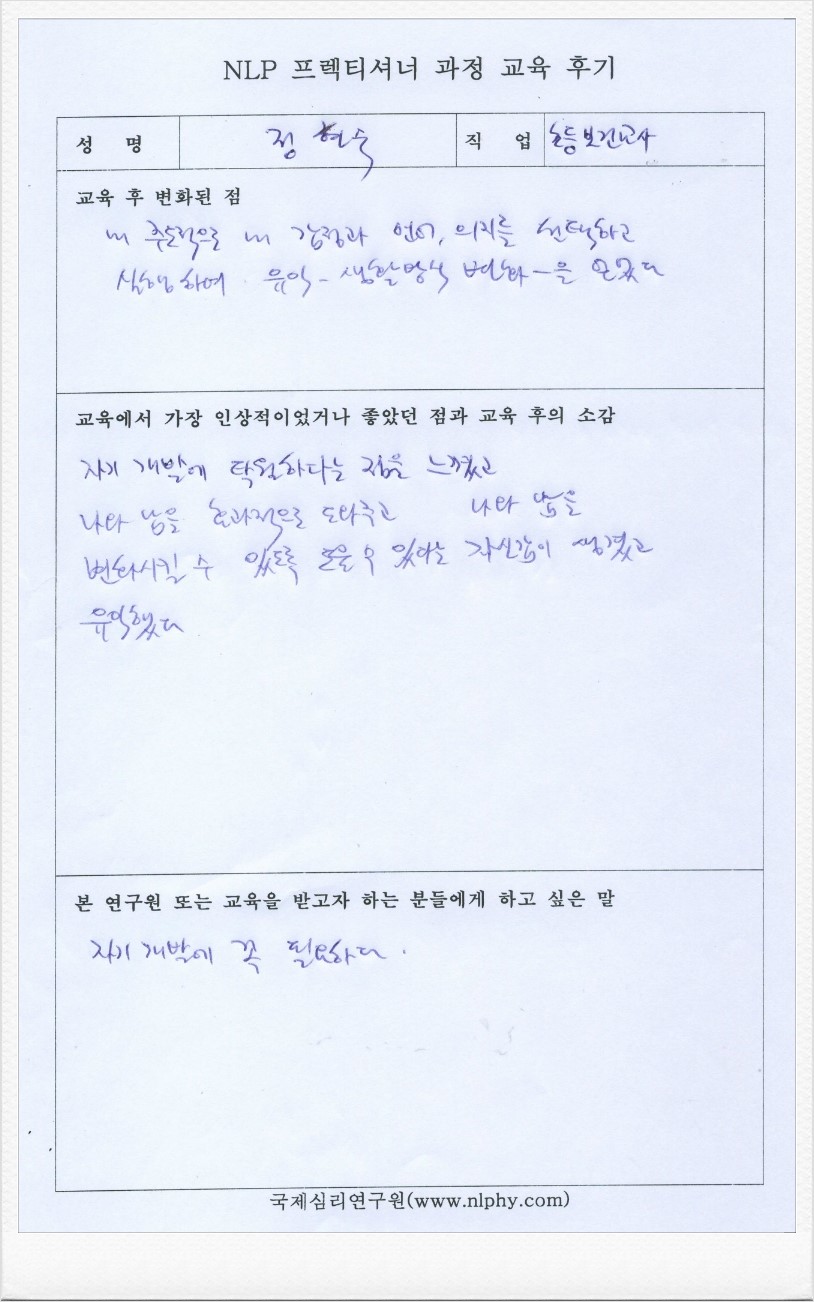 NLP 프렉티셔너 과정 교육 후기
성 명 정현숙 직 업 초등보건교사
교육 후 변화된 점
내 주도적으로 내 감정과 언어, 의지를 선택하고
실행하여 유익-생활방식 변화-을
교육에서 가장 인상적이었거나 좋았던 점과 교육 후의 소감
자기 개발에 탁월하다는 점을 느꼈고
나와 남을 효과적으로 도와주고 나와 남을
변화시킬 수 있도록 도울 수 있다는 자신감이 생겼고
유익했다
본 연구원 또는 교육을 받고자 하는 분들에게 하고 싶은 말
자기 개발에 꼭 필요하다.
국제심리연구원(www.nlphy.com)